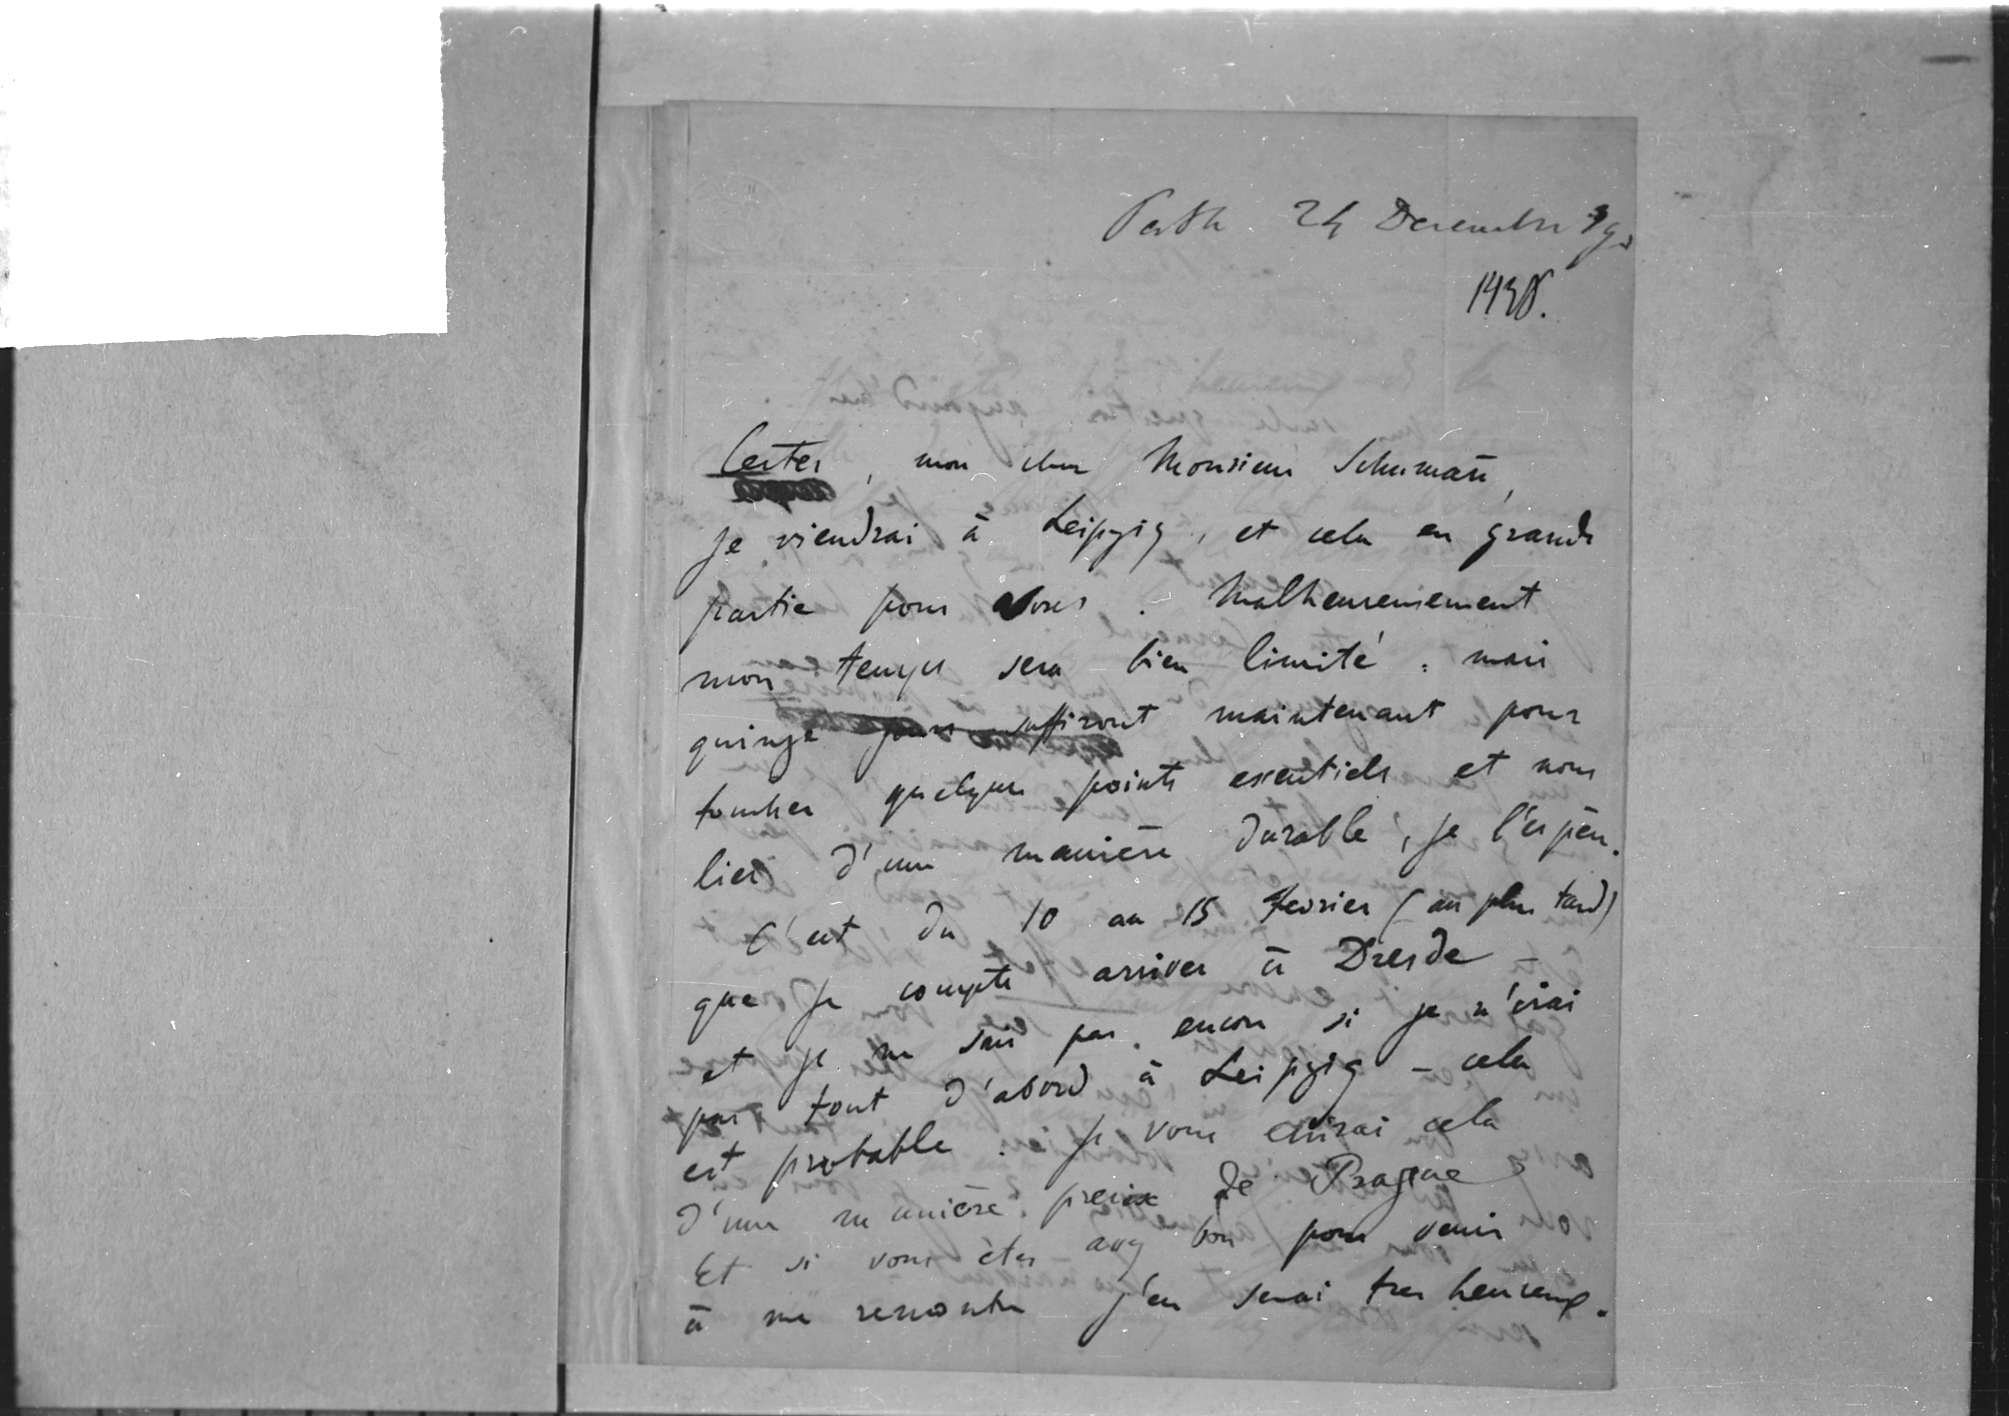 Pesth 24 Decembre 39.
1438.
Certes, mon cher Monsieur Schumañ,
je viendrai à Leipzig, et cela en grande
partie pour vous. Malheureusement
mon temps sera bien limité : mais
quinze jours suffiront maintenant pour
toucher quelques points essentiels et nous
lier d'une manière durable, je l'espère.
C'est du 10 au 15 fevrier (au plus tard)
que je compte arriver à Dresde –
et je ne sais pas encore si je n'irai
pas tout d'abord à Leipzig – cela
est probable. Je vous écrirai cela
d'une manière precise de Prague
Et si vous êtes assez bon pour venir
à ma rencontre j'en serai tres heureux.